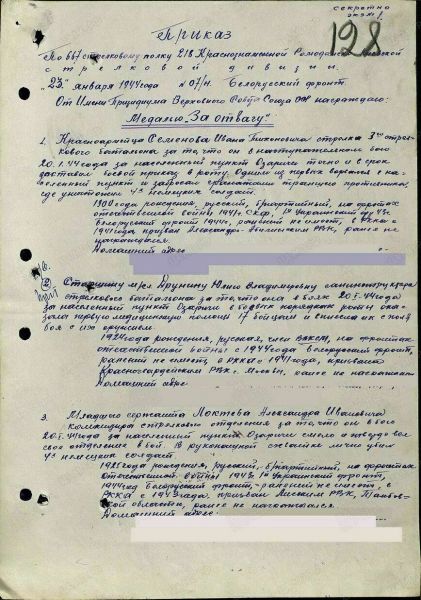 секретно
экз №1
128
Приказ
По 667 стрелковому полку 218 Краснознаменной Ромодано Киевской
стрелковой дивизии
"23" января 1944 года № 07/н. Белорусский фронт.
От имени Президиума Верховного Совета Союза ССР награждаю:
Медалью "За отвагу"
1. Красноармейца Семенова Ивана Тихоновича стрелка 3го стрел-
кового батальона за то что он в наступательном бою
20.1.44 года за населенный пункт Озаричи точно и в срок
доставил боевой приказ в роту. Одним из первых ворвался в на-
селенный пункт и забросал гранатами траншею противника,
где уничтожил 4х немецких солдат.
1900 года рождения, русский, б/партийный, на фронтах
отечественной войны 1941г. 1й Украинский фр 43г.
Белорусский фронт 1944г, ранений не имеет, в РККА с
1941 года призван РВК, ранее не
награждался.
Домашний адрес
2. Старшину м/с Друнину Юлию Владимировну санинструктора
стрелкового батальона за то, что она в боях 20.I.44 года
за населенный пункт Озаричи в боевых порядках роты ока-
зала первую медицинскую помощь 17 бойцам и вынесла их с поля
боя с их оружием.
1924 года рождения, русская, член ВЛКСМ, на фронтах
отечественной войны с 1944 года Белорусский фронт,
ранений не имеет, в РККА с 1941 года, призвана
Красногвардейским РВК г. Москвы, ранее не награждалась
Домашний адрес
3. Младшего сержанта Александра Ивановича
командира стрелкового отделения за то, что он в бою
20.I.44 года за населенный пункт Озаричи смело и твердо вел
свое отделение в бой. В рукопашной схватке лично убил
4х немецких солдат
1925 года рождения, русский, б/партийный, на фронтах
отечественной войны 1943г. 1й Украинский фронт,
1944 год Белорусский фронт,- ранений не имеет, в
РККА с 1943 года. призван РВК, Тамбов-
ской области, ранее не награждался.
Домашний адрес: